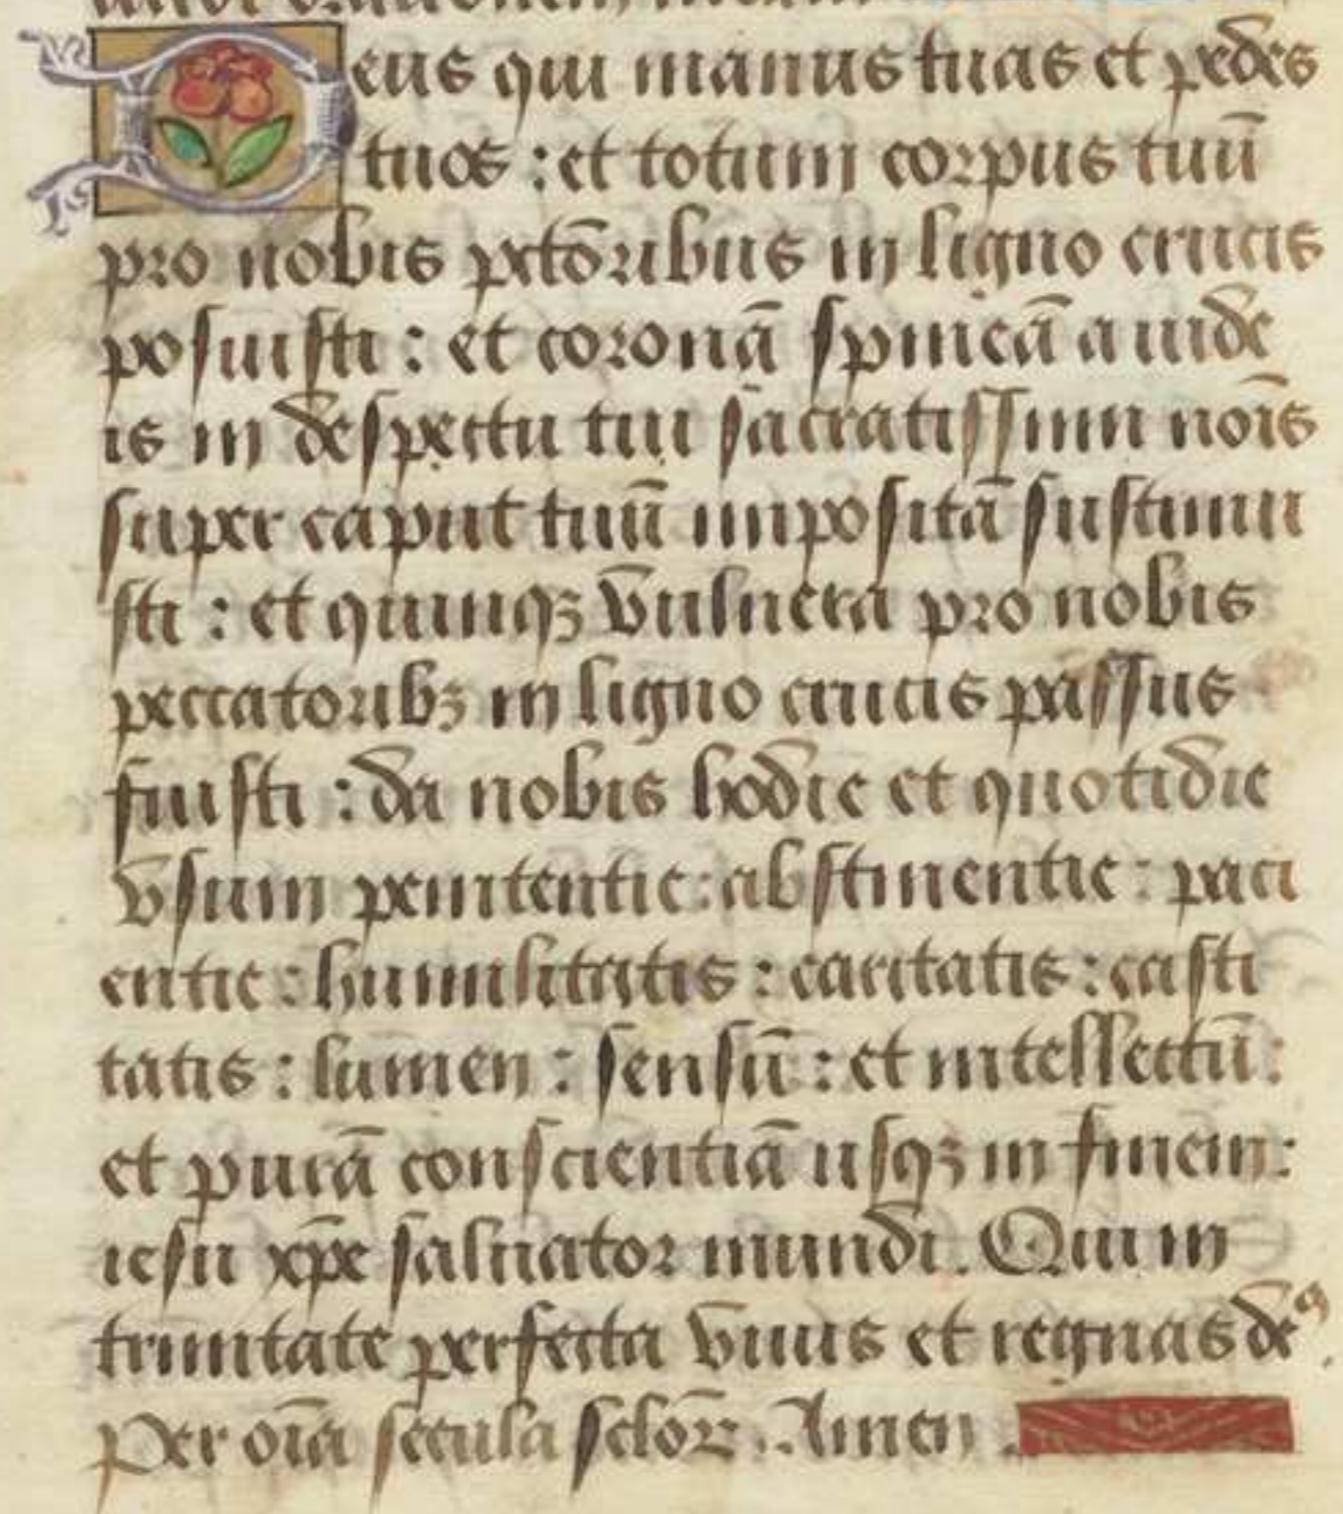 Deus qui manus tuas et pedes
tuos : et totum corpus tuū
pro nobis pctōribus in ligno crucis
posuisti : et coronā spineā a iude
is in despectu tui sacratissimi noīs
super caput tuū impositā sustinui
sti : et quinqꝫ vulnera pro nobis
peccatoribꝫ in ligno crucis passus
fuisti : da nobis hodie et quotidie
vsum penitentie : abstinentie : paci
entie : humilitatis : caritatis : casti
tatis : lumen : sensū : et intellectū :
et purā conscientiā usqꝫ in finem :
iesu xp̄e saluator mundi. Qui in
trinitate perfecta viuis et regnas deꝰ.
Per oīa secula sclōꝝ. Amen.